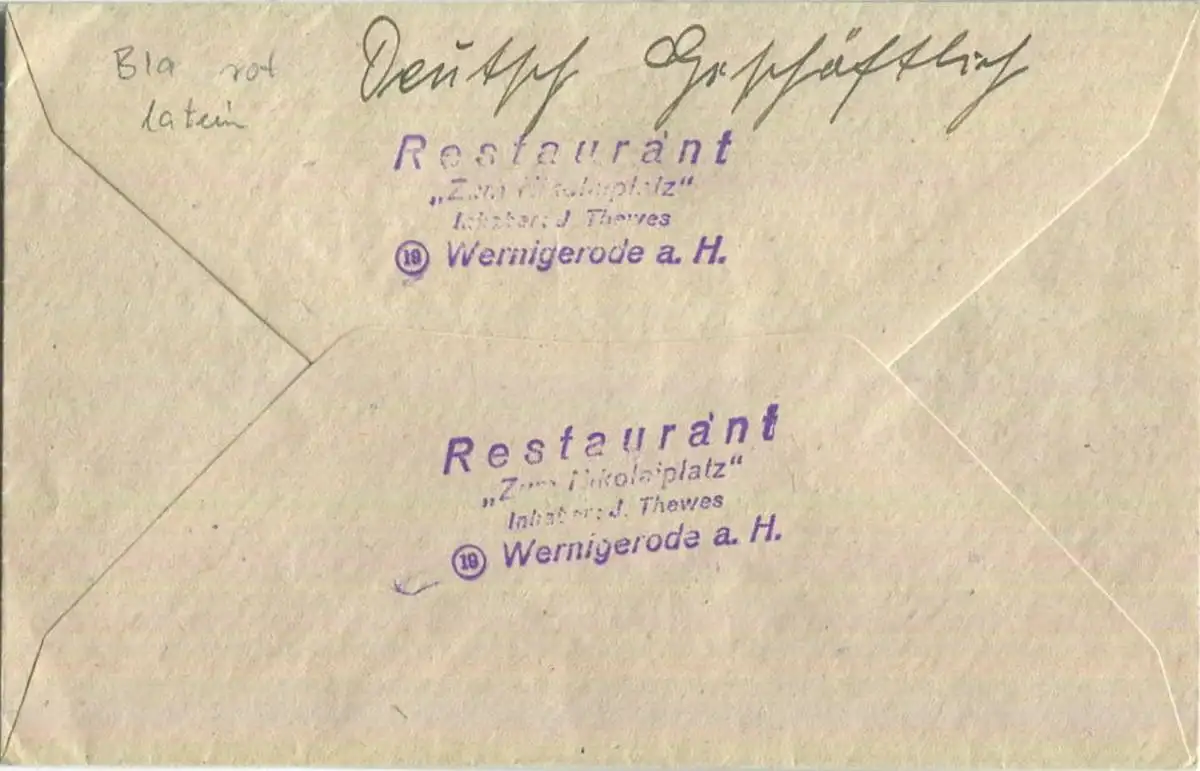 Bla rot
latein
Deutsch Geschäftlich
Restaurant
„Zum Nikolaiplatz“
Inhaber: J. Thewes
19 Wernigerode a. H.
Restaurant
„Zum Nikolaiplatz“
Inhaber: J. Thewes
19 Wernigerode a. H.